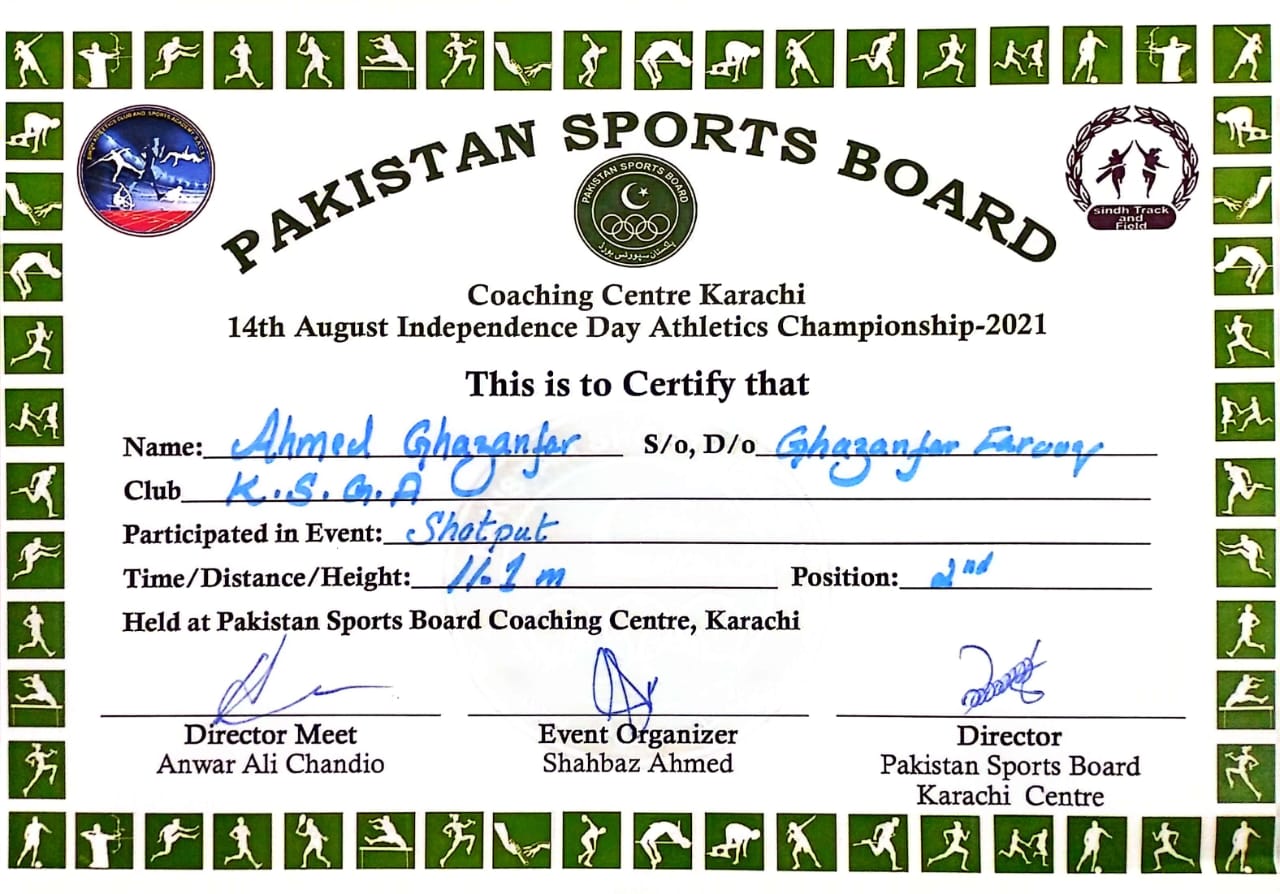 PAKISTAN SPORTS BOARD
PAKISTAN SPORTS BOARD
پاکستان سپورٹس بورڈ
Sindh Track
and
Field
Coaching Centre Karachi
14th August Independence Day Athletics Championship-2021
This is to Certify that
Name: Ahmed Ghazanfar S/o, D/o Ghazanfar Farooq
Club K.S.G.A
Participated in Event: Shotput
Time/Distance/Height: 11.1 m Position: 2nd
Held at Pakistan Sports Board Coaching Centre, Karachi
Director Meet
Anwar Ali Chandio
Event Organizer
Shahbaz Ahmed
Director
Pakistan Sports Board
Karachi Centre